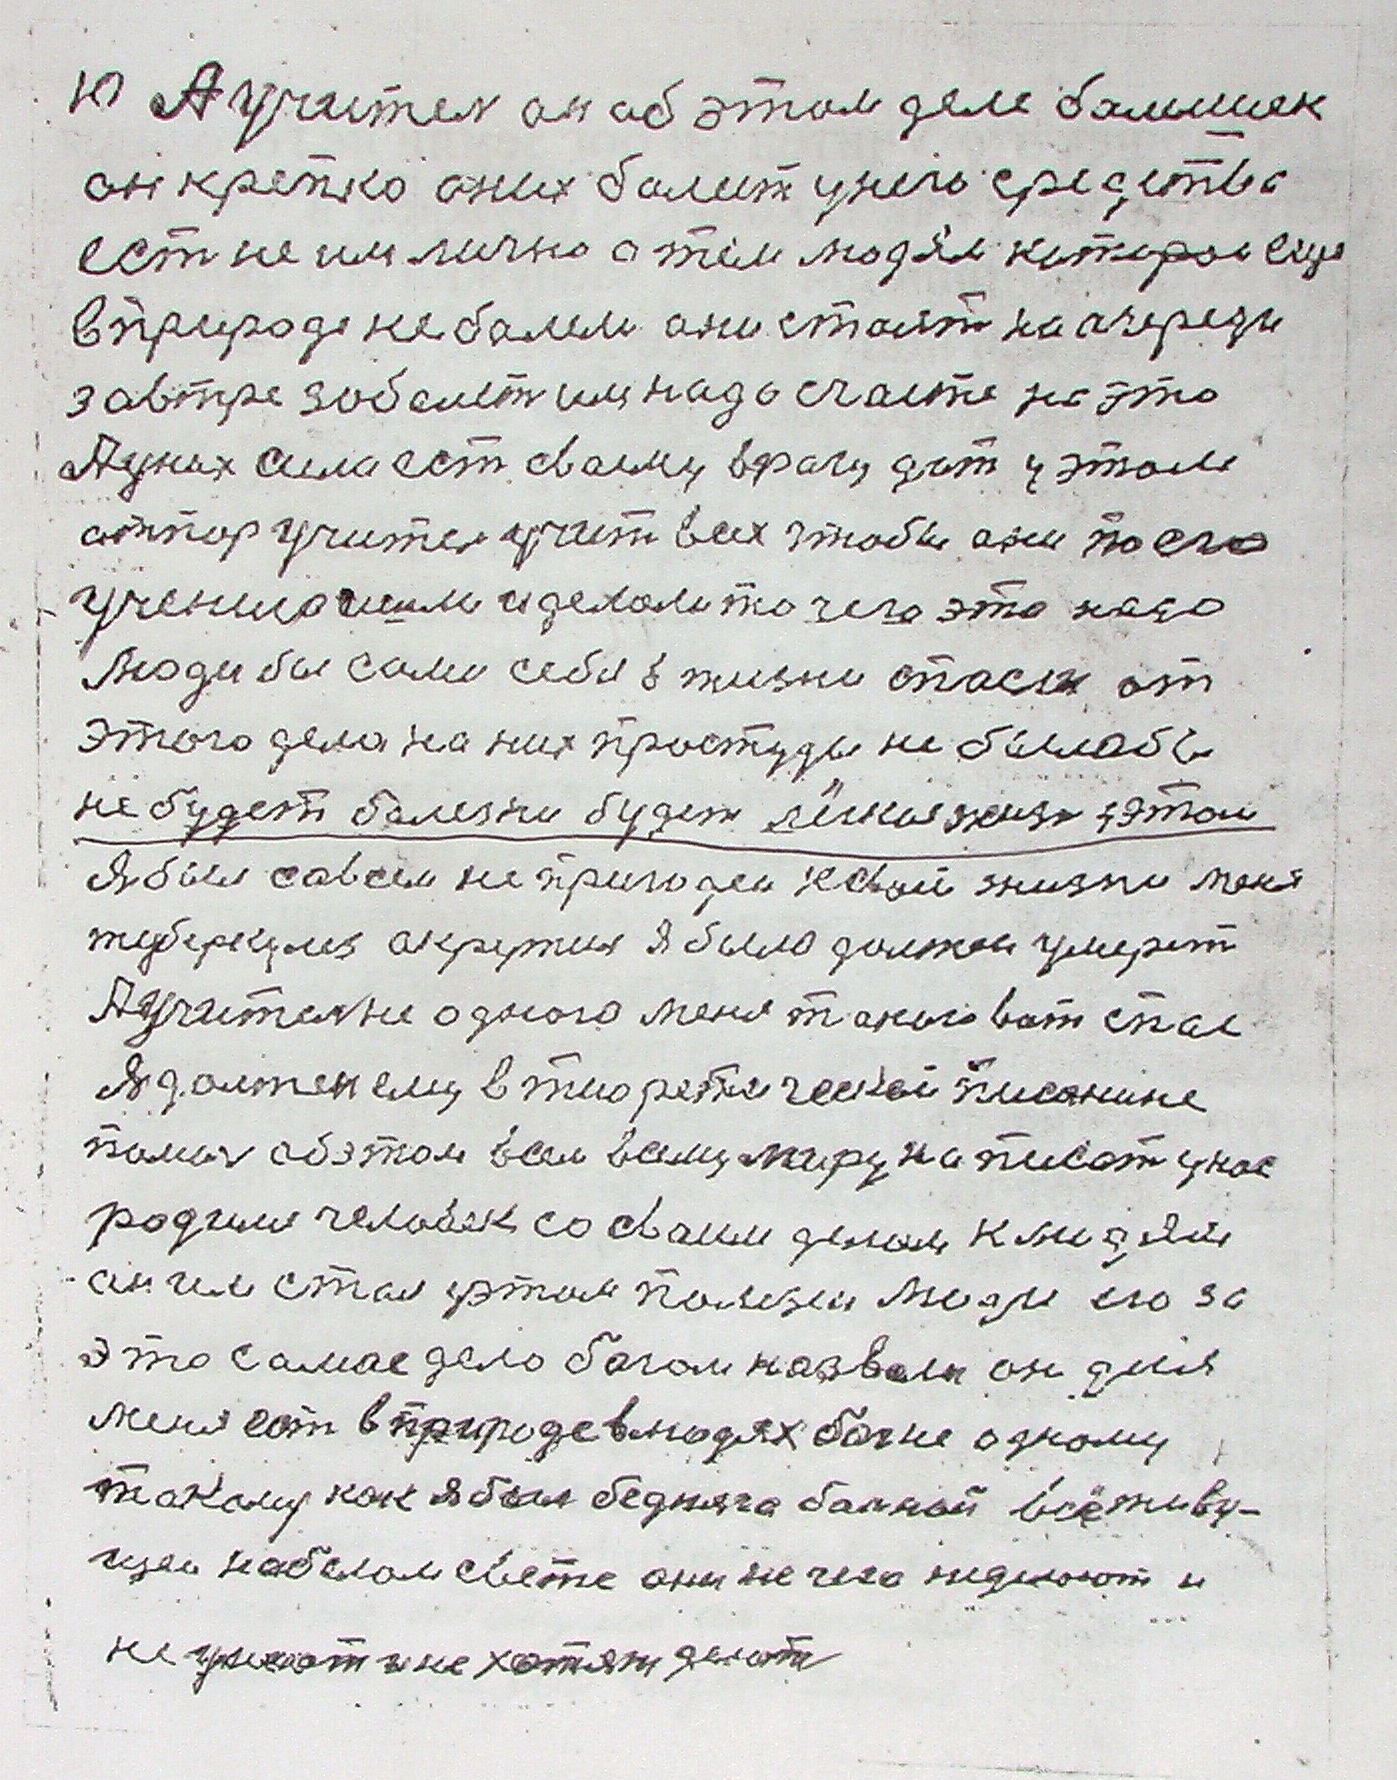 10 А Учител он об этом деле балшшек
он крепко оних болит унего средства
ест не им лично а тем людям которои еще
в природе не балели они стоят на очереди
завтре зоболет им надо счасте на это
А у них сила ест своему врагу дат у этом
отпор Учител учит всех чтобы они по его
учению шли и делали то чего это надо
Люди бы сами себя в жизни спасли от
этого дела на них простуды не былабы
не будет болезни будет лёгкия жизн у этом
я был савсем не пригоден к свои жизни меня
туберкулез окружил я было должен умерет
А Учител не одного меня такого вот спас
Я должен ему в тиоретической писанине
помоч об этом всем всему миру написат у нас
родилс человек со своим делом к людям
он им стал у этом полезен Люди его за
это самае дело богом назвали он для
меня ест в природе в людях бог не одному
такому как я был бедняга болной всё живу-
щеи на белом свете они не чего не делоют и
не умеют и не хотят делат